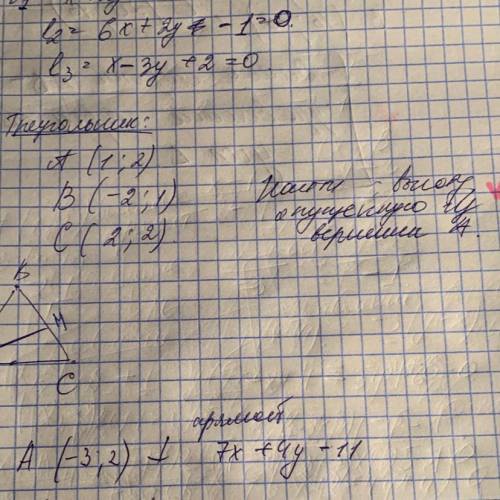 l₂= 6x+2y - 1=0.
l₃= x-3y+2=0
Треугольник:
A (1;2)
B (-2;1)
C (2;2)
Найти высоту
опущенную из
вершины A.
B
H
C
прямой
A (-3;2) ⊥ 7x+4y-11